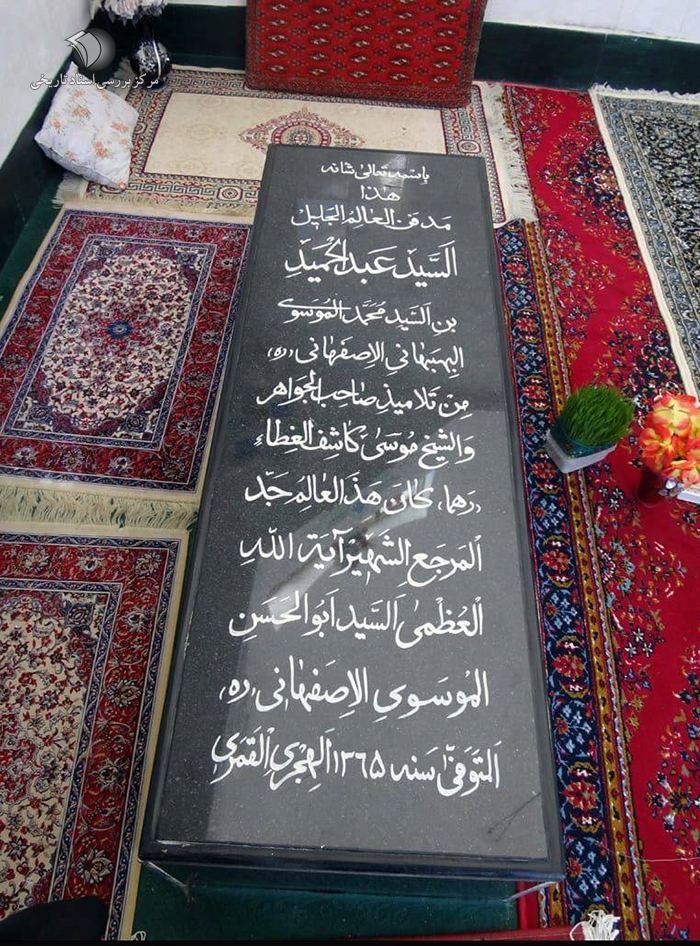 مرکز بررسی اسناد تاریخی
باسمه تعالی شانه
هذا
مدفن العالم الجلیل
اَلسَّیِد عَبدالحَمیدِ
بن السَّیِدِ مُحَمَّد المُوسَوی
البهبهانی الاِصفهانی (ره)
مِنْ تَلامیذِ صاحب الجَواهر
وَالشیخ مُوسیٰ کاشف الغِطاءِ
(رهما) کانَ هذَا العٰالِم جَدّ
المَرجَعِ الشَّهیر آیَة اللهِ
العُظْمیٰ اَلسَّید اَبُوالحَسَنِ
المُوسَوِی الاِصفهانی (ره)
المُتوفّیٰ سَنه ۱۳۶۵ اَلهِجْرِی اَلقَمَری